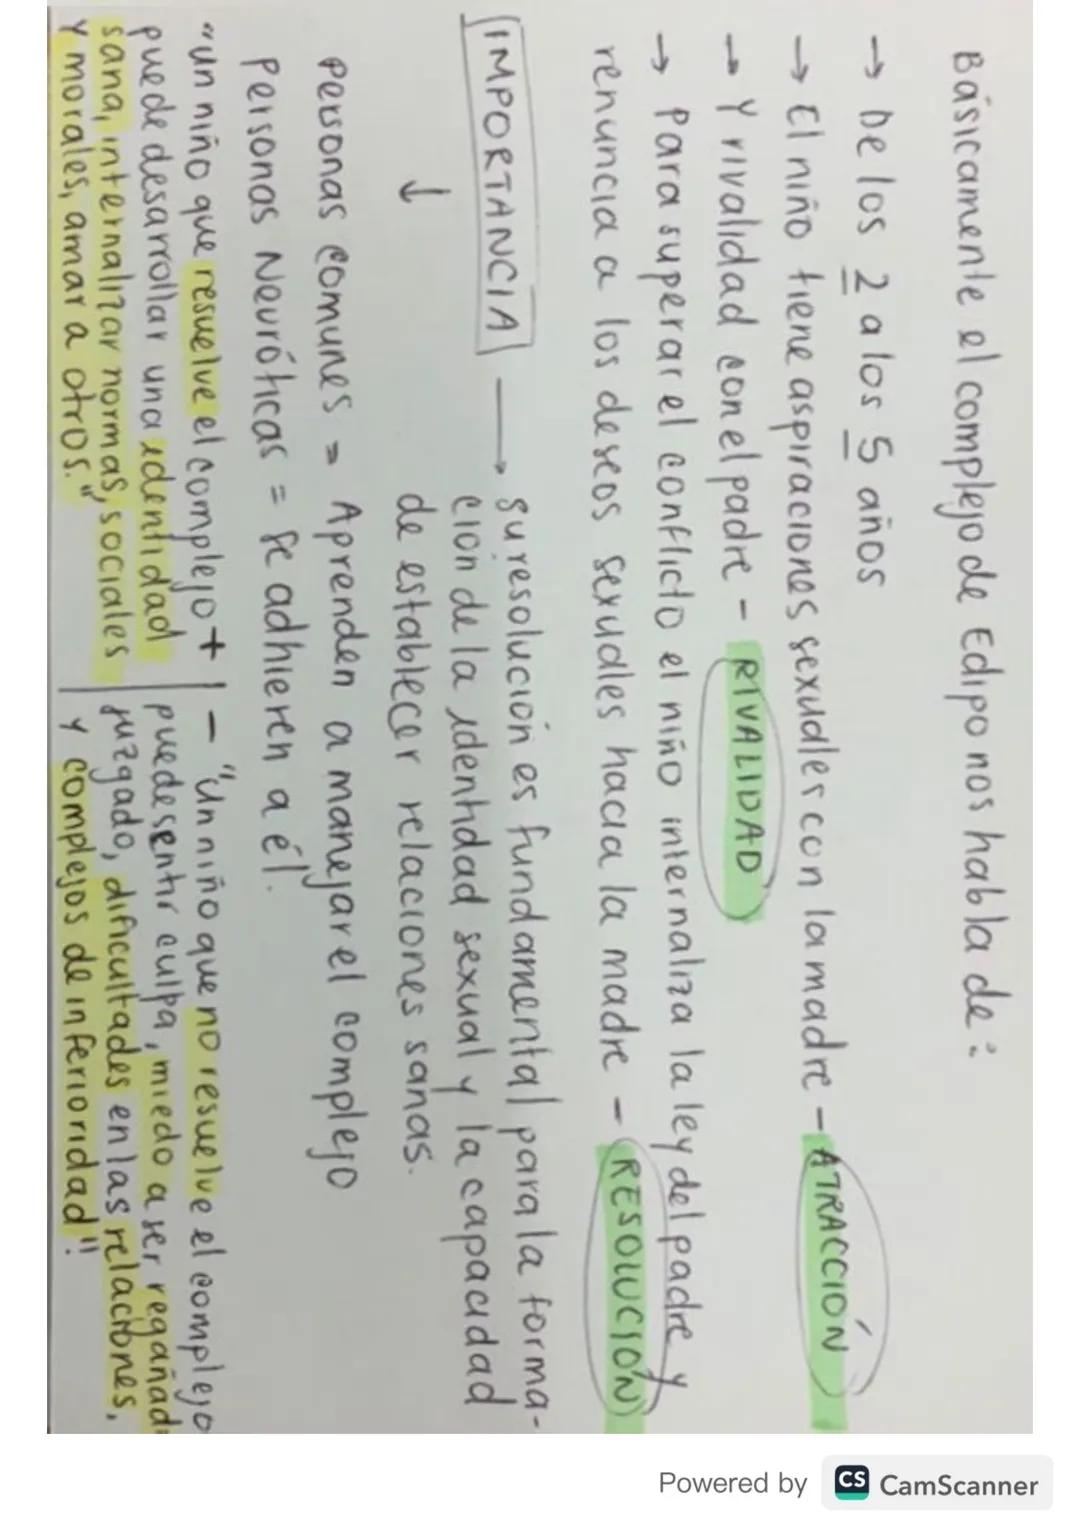 Básicamente el complejo de Edipo nos habla de:
→ De los 2 a los 5 años
→ El niño tiene aspiraciones sexuales con la madre - ATRACCIÓN
→ Y rivalidad con el padre - RIVALIDAD
→ Para superar el conflicto el niño internaliza la ley del padre y
renuncia a los deseos sexuales hacia la madre - RESOLUCIÓN
IMPORTANCIA → su resolución es fundamental para la forma-
ción de la identidad sexual y la capacidad
↓ de establecer relaciones sanas.
Personas comunes = Aprenden a manejar el complejo
Personas Neuróticas = se adhieren a él.
"un niño que resuelve el complejo +
puede desarrollar una identidad
sana, internalizar normas, sociales
y morales, amar a otros."
- "Un niño que no resuelve el complejo
puede sentir culpa, miedo a ser regañad
juzgado, dificultades en las relaciones,
y complejos de inferioridad"!
Powered by CS CamScanner